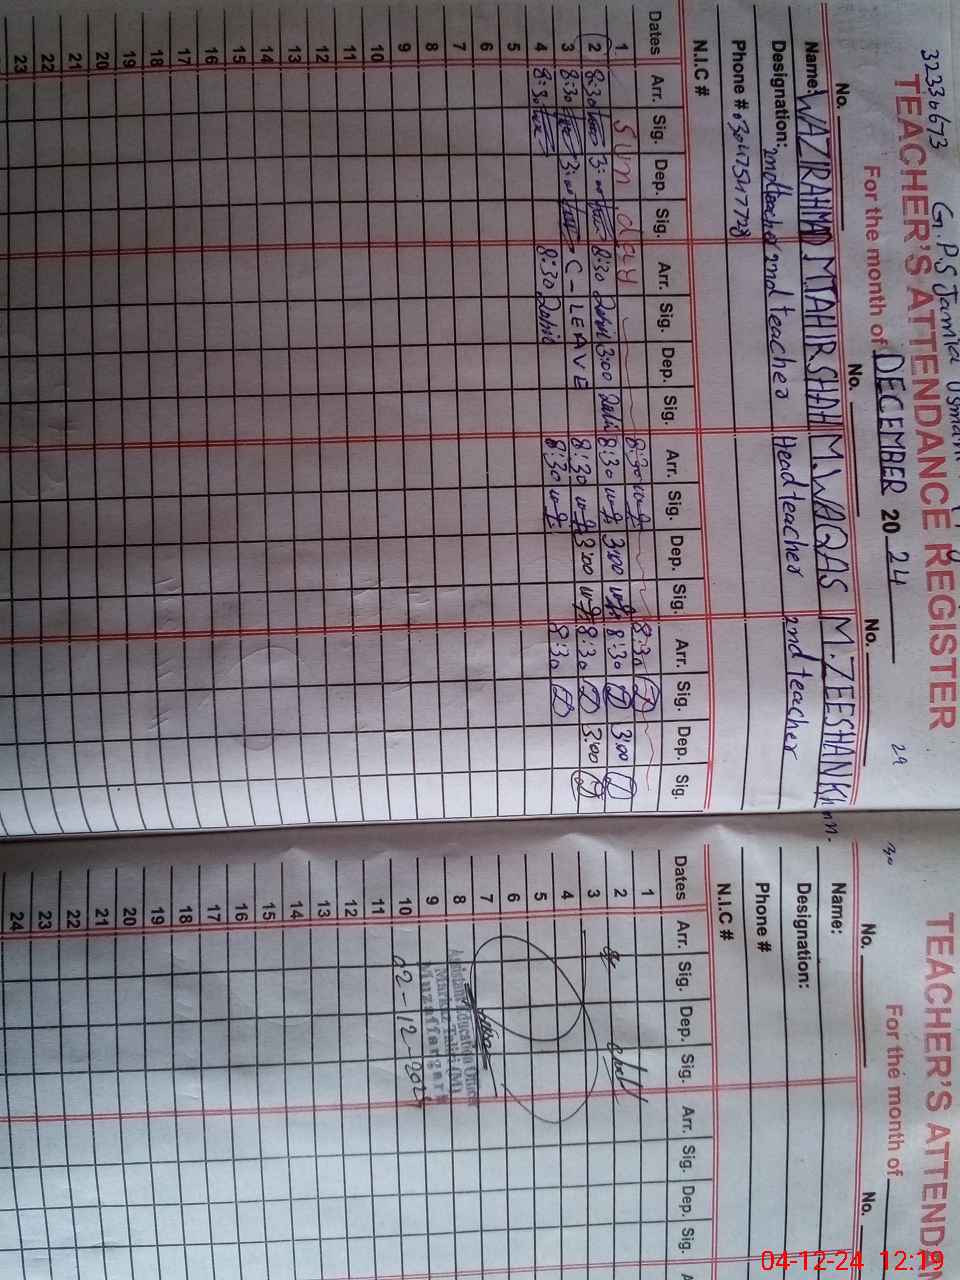 32330673 G.P.S Jamia Usmania
TEACHER'S ATTENDANCE REGISTER
For the month of DECEMBER 20 24
29
No. No. No. No.
Name: WAZIRAHMAD M.TAHIRSHAH M.WAQAS M.ZEESHANKhan.
Designation: 2nd teacher 2nd teacher Headteacher 2nd teacher
Phone # 03047547728
N.I.C #
Dates Arr. Sig. Dep. Sig. Arr. Sig. Dep. Sig. Arr. Sig. Dep. Sig. Arr. Sig. Dep. Sig.
1 Sun day 8:30 8:30
2 8:30 3:00 8:30 3:00 8:30 3:00 8:30 3:00
3 8:30 3:00 C-LEAVE 8:30 3:00 8:30 3:00
4 8:30 8:30 8:30 8:30
5
6
7
8
9
10
11
12
13
14
15
16
17
18
19
20
21
22
23
30
TEACHER'S ATTENDA
For the month of
No. No.
Name:
Designation:
Phone #
N.I.C #
Dates Arr. Sig. Dep. Sig. Arr. Sig. Dep. Sig. A
1
2
3
4
5
6
7
8
9
10
11
12
13
14
15
16
17
18
19
20
21
22
23
24
Assistant Education Officer
Markaz (M)
Muzaffargarh
02-12-2024
04-12-24 12:19